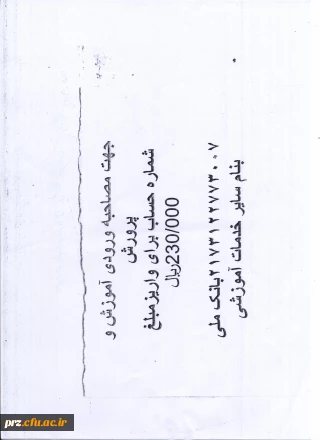 جهت مصاحبه ورودی آموزش و
پرورش
شماره حساب برای واریز مبلغ
230/000ریال
۲۱۷۳۱۲۲۷۷۳۰۰۷بانک ملی
بنام سایر خدمات آموزشی
prz.cfu.ac.ir